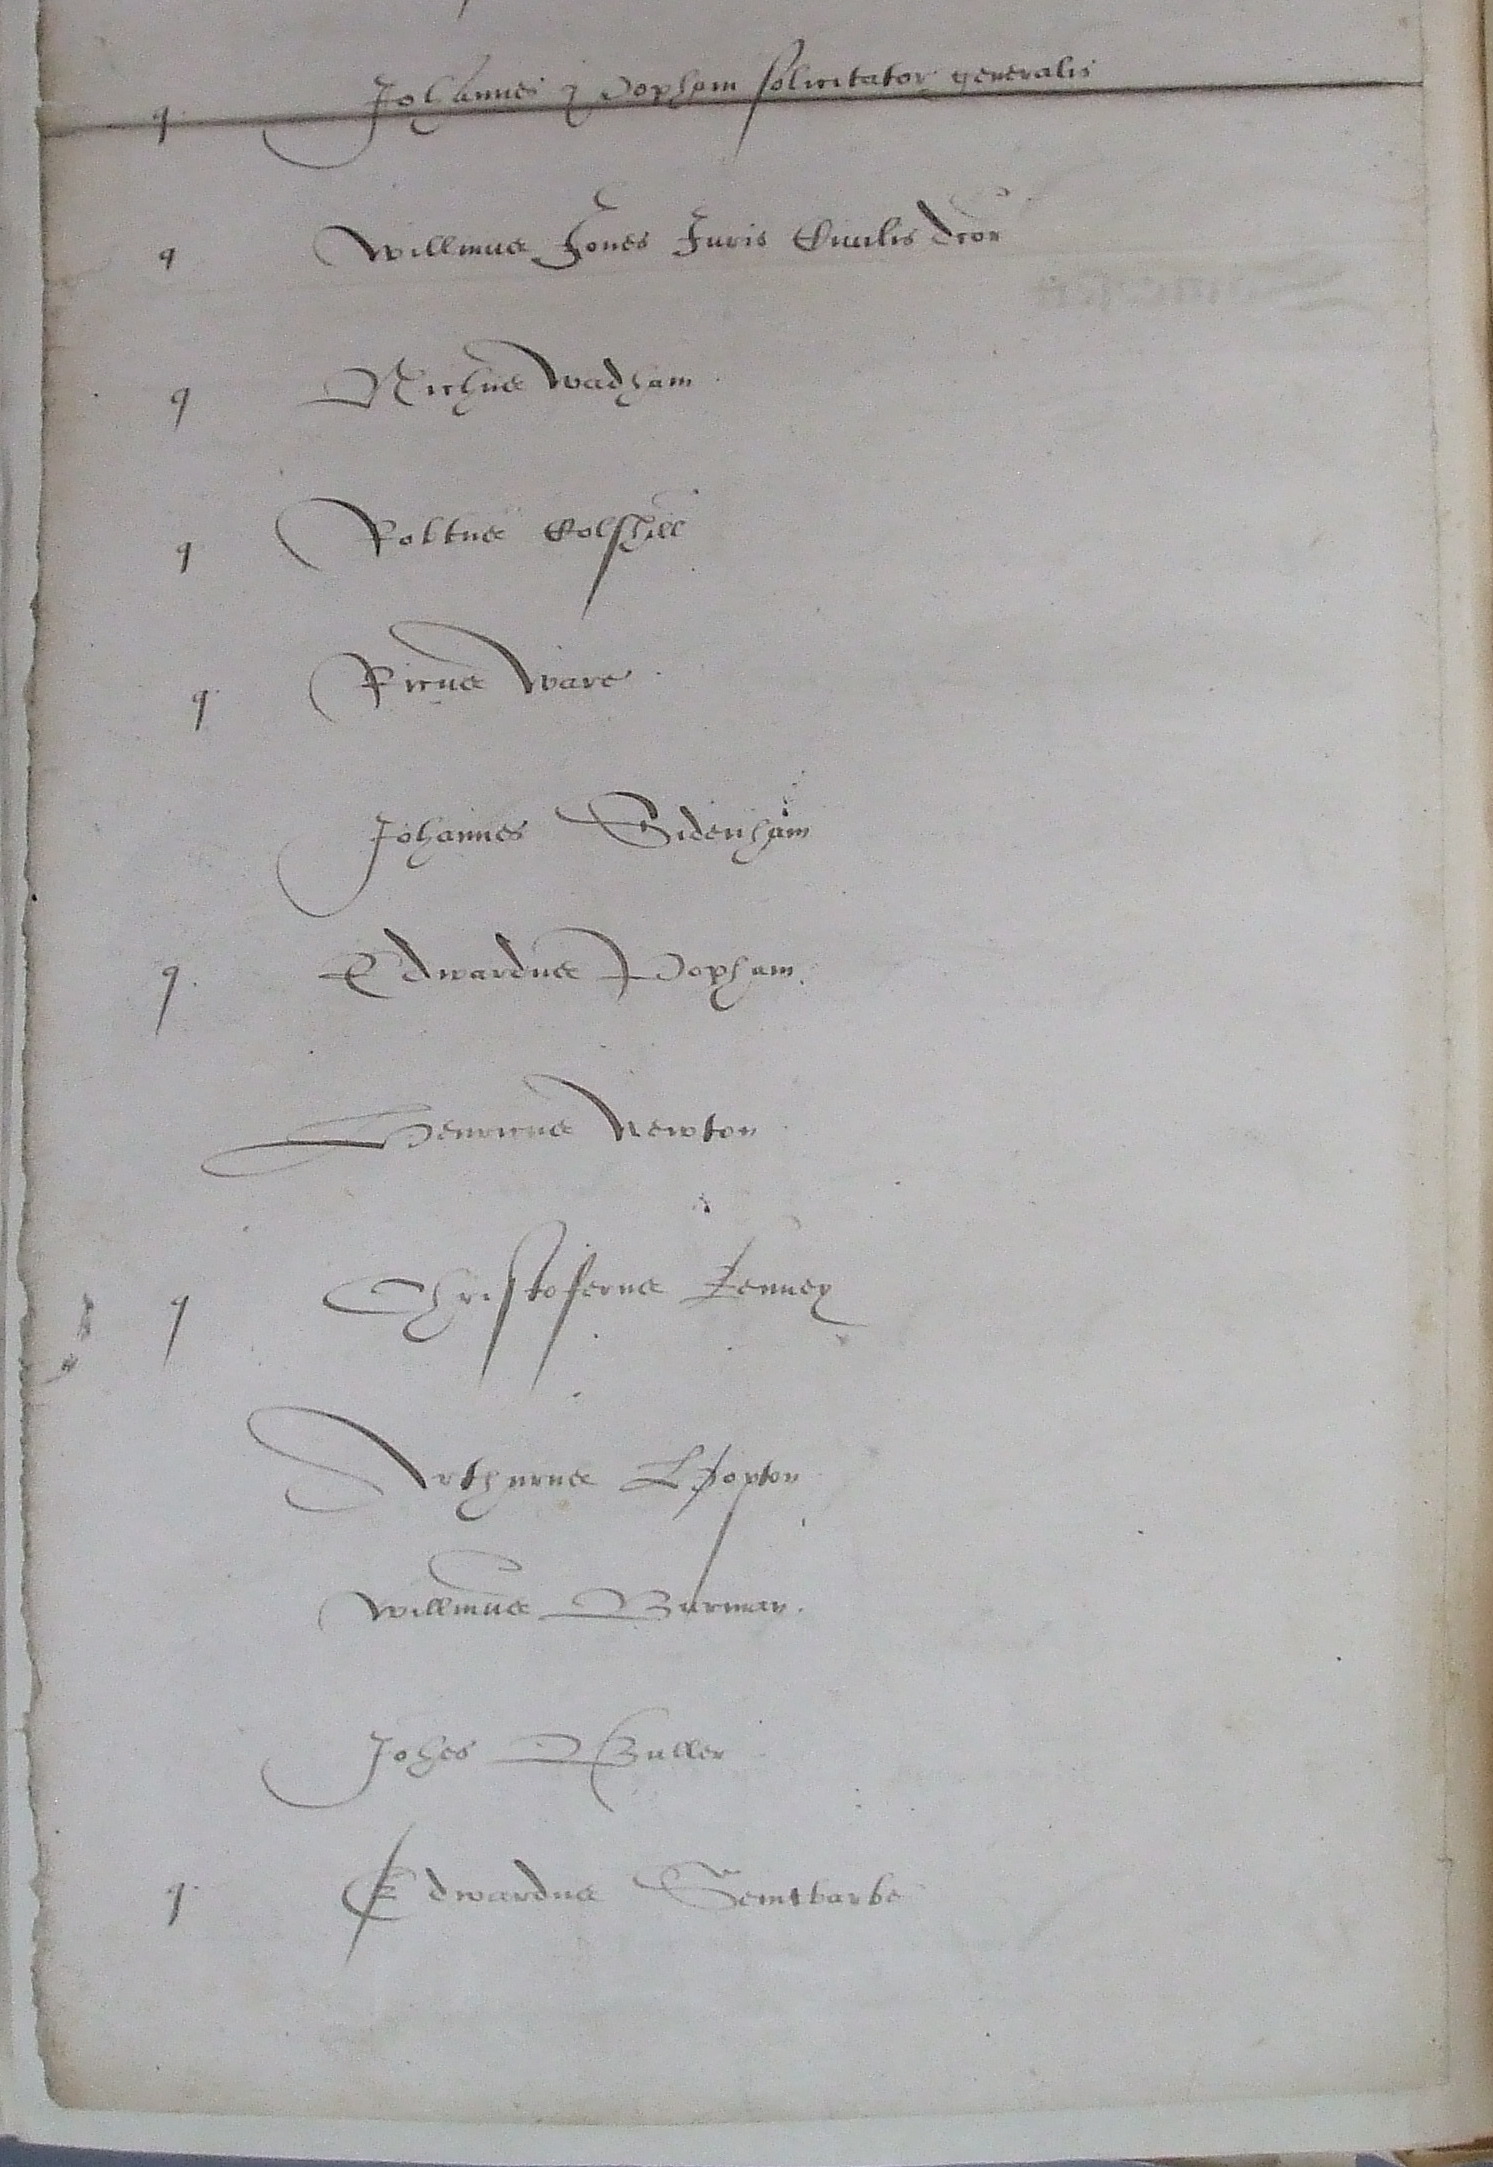 q Johannes Popham solicitator generalis
q Willmus Jones Juris Ciuilis dcor
q Nichus Wadham
q Robtus Colshill
q Ricus Ware
Johannes Sidenham
q Edwardus Popham
Henricus Newton
q Christoferus Kenney
Arthurus Hopton
Willmus Burman
Johes Buller
q Edwardus Seintbarbe